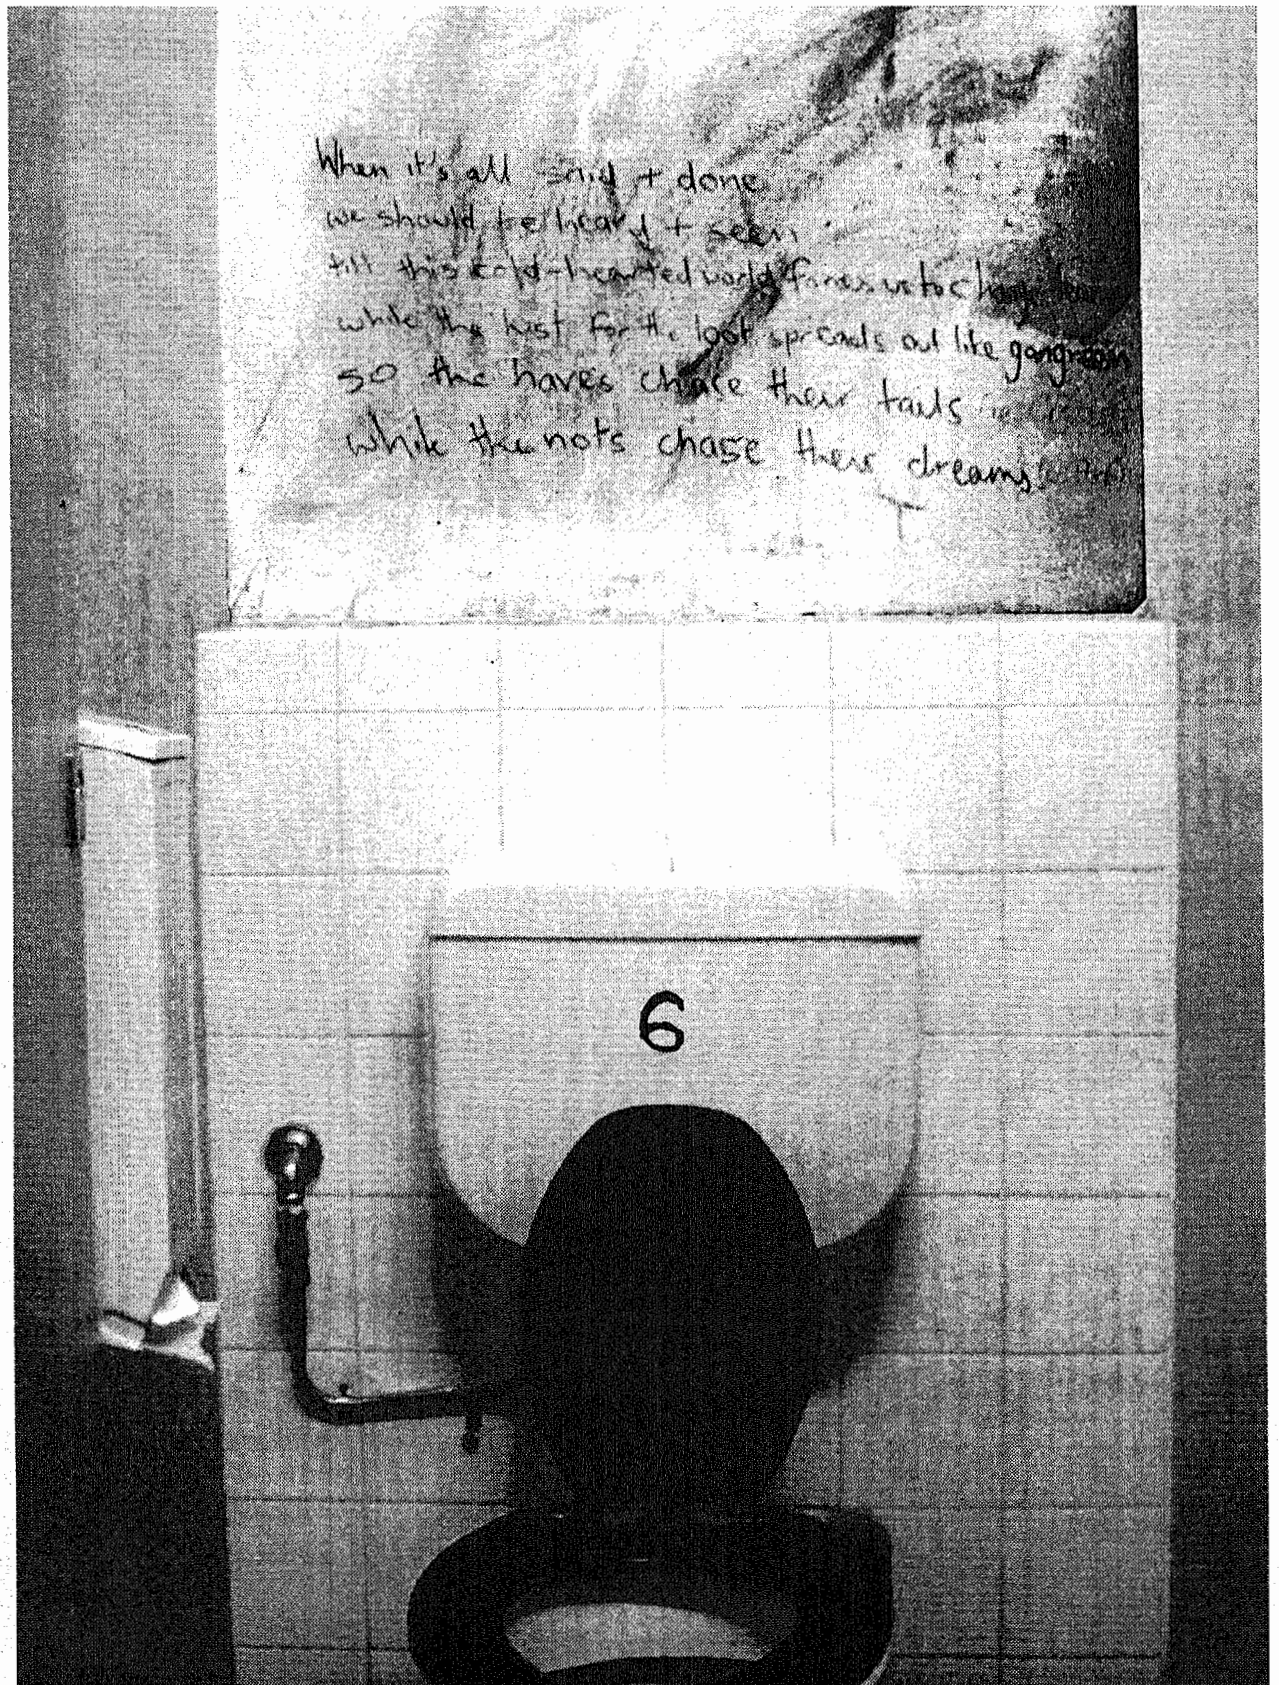 When it's all said + done
we should be heard + seen
till this cold-hearted world forces us to
while the lust for the loot spreads out like gangreen
so the haves chase their tails
while the nots chase their dreams
6